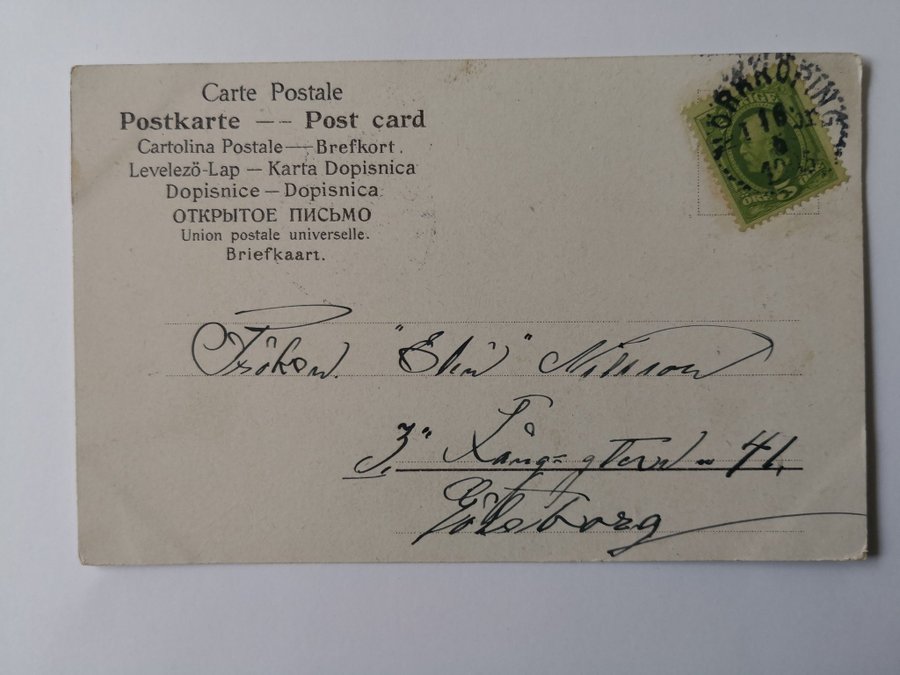 Carte Postale
Postkarte -- Post card
Cartolina Postale—Brefkort.
Levelező-Lap — Karta Dopisnica
Dopisnice — Dopisnica
ОТКРЫТОЕ ПИСЬМО
Union postale universelle.
Briefkaart.
NORRKÖPING
5
ÖRE
Fröken "Elin" Nilsson
3" Långg 41.
Göteborg